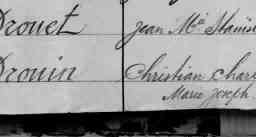 Drouet Jean Mie Stanis
Drouin Christian Char
Marie Joseph